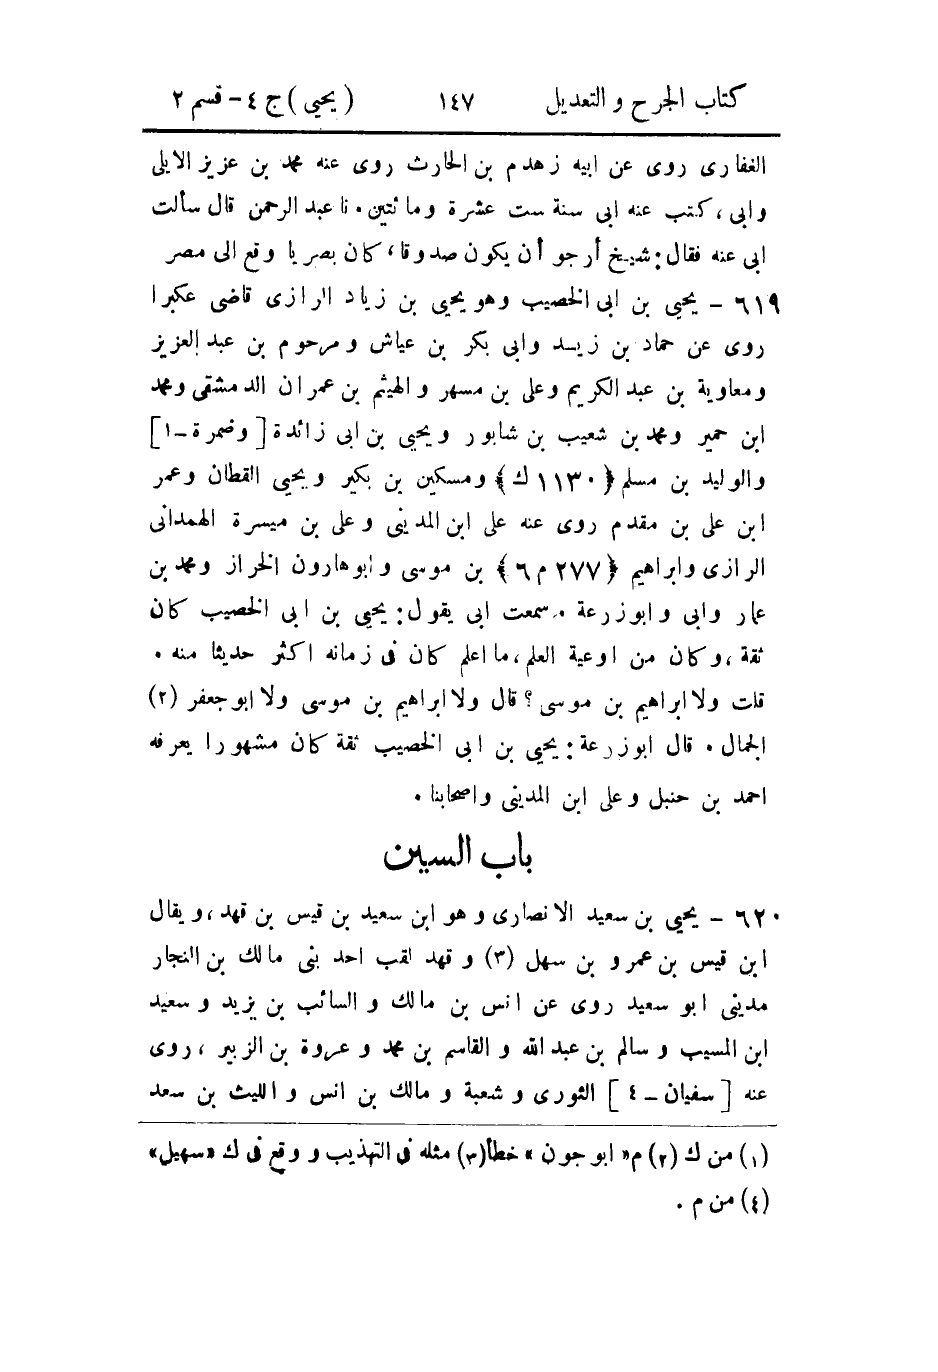 كتاب الجرح و التعديل ١٤٧ (يحيى) ج ٤ - قسم ٢
الغفارى روى عن ابيه زهدم بن الحارث روى عنه محمد بن عزيز الايلى
وابى، كتب عنه ابى سنة ست عشرة ومائتين. نا عبد الرحمن قال سألت
ابى عنه فقال: شيخ أرجو أن يكون صدوقا، كان بصريا وقع الى مصر
٦١٩ - يحيى بن ابى الخصيب وهو يحيى بن زياد الرازى قاضى عكبرا
روى عن حماد بن زيد وابى بكر بن عياش و مرحوم بن عبد العزيز
ومعاوية بن عبد الكريم وعلى بن مسهر و الهيثم بن عمران الدمشقى ومحمد
ابن حمير ومحمد بن شعيب بن شابور و يحيى بن ابى زائدة [ وضمرة - ١ ]
والوليد بن مسلم ﴿١١٣٠ ك﴾ ومسكين بن بكير و يحيى القطان وعمر
ابن على بن مقدم روى عنه على ابن المدينى وعلى بن ميسرة الهمدانى
الرازى وابراهيم ﴿٢٧٧ م ٦﴾ بن موسى وابو هارون الخراز ومحمد بن
عمار وابى وابوزرعة. سمعت ابى يقول: يحيى بن ابى الخصيب كان
ثقة، وكان من اوعية العلم، ما اعلم كان فى زمانه اكثر حديثا منه.
قلت ولا ابراهيم بن موسى؟ قال ولا ابراهيم بن موسى ولا ابو جعفر (٢)
الجمال. قال ابوزرعة: يحيى بن ابى الخصيب ثقة كان مشهورا يعرفه
احمد بن حنبل وعلى ابن المدينى واصحابنا.
باب السين
٦٢٠ - يحيى بن سعيد الانصارى و هو ابن سعيد بن قيس بن قهد، و يقال
ابن قيس بن عمرو بن سهل (٣) و قهد لقب احد بنى مالك بن النجار
مدينى ابو سعيد روى عن انس بن مالك و السائب بن يزيد و سعيد
ابن المسيب و سالم بن عبد الله و القاسم بن محمد و عروة بن الزبير، روى
عنه [ سفيان - ٤ ] الثورى و شعبة و مالك بن انس و الليث بن سعد
(١) من ك (٢) م «ابو جون» خطأ (٣) مثله فى التهذيب و وقع فى ك «سهيل»
(٤) من م.